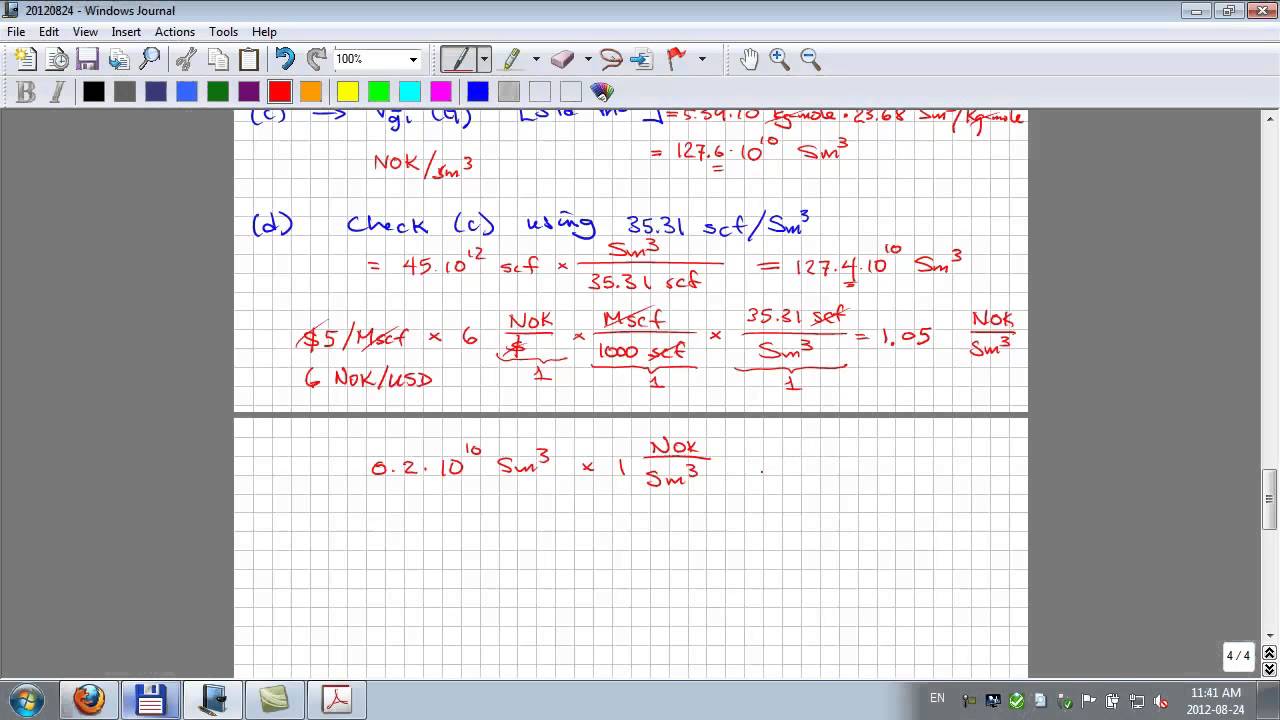 20120824 - Windows Journal
File Edit View Insert Actions Tools Help
100%
B I
NOK/Sm³
= 127.6 · 10¹⁰ Sm³
(d) Check (c) using 35.31 scf/Sm³
= 45·10¹² scf × Sm³ / 35.31 scf = 127.4·10¹⁰ Sm³
$5/Mscf × 6 NOK/$ × Mscf/1000 scf × 35.31 scf/Sm³ = 1.05 NOK/Sm³
1 1 1
6 NOK/USD
0.2 · 10¹⁰ Sm³ × 1 NOK/Sm³
4 / 4
EN
11:41 AM
2012-08-24